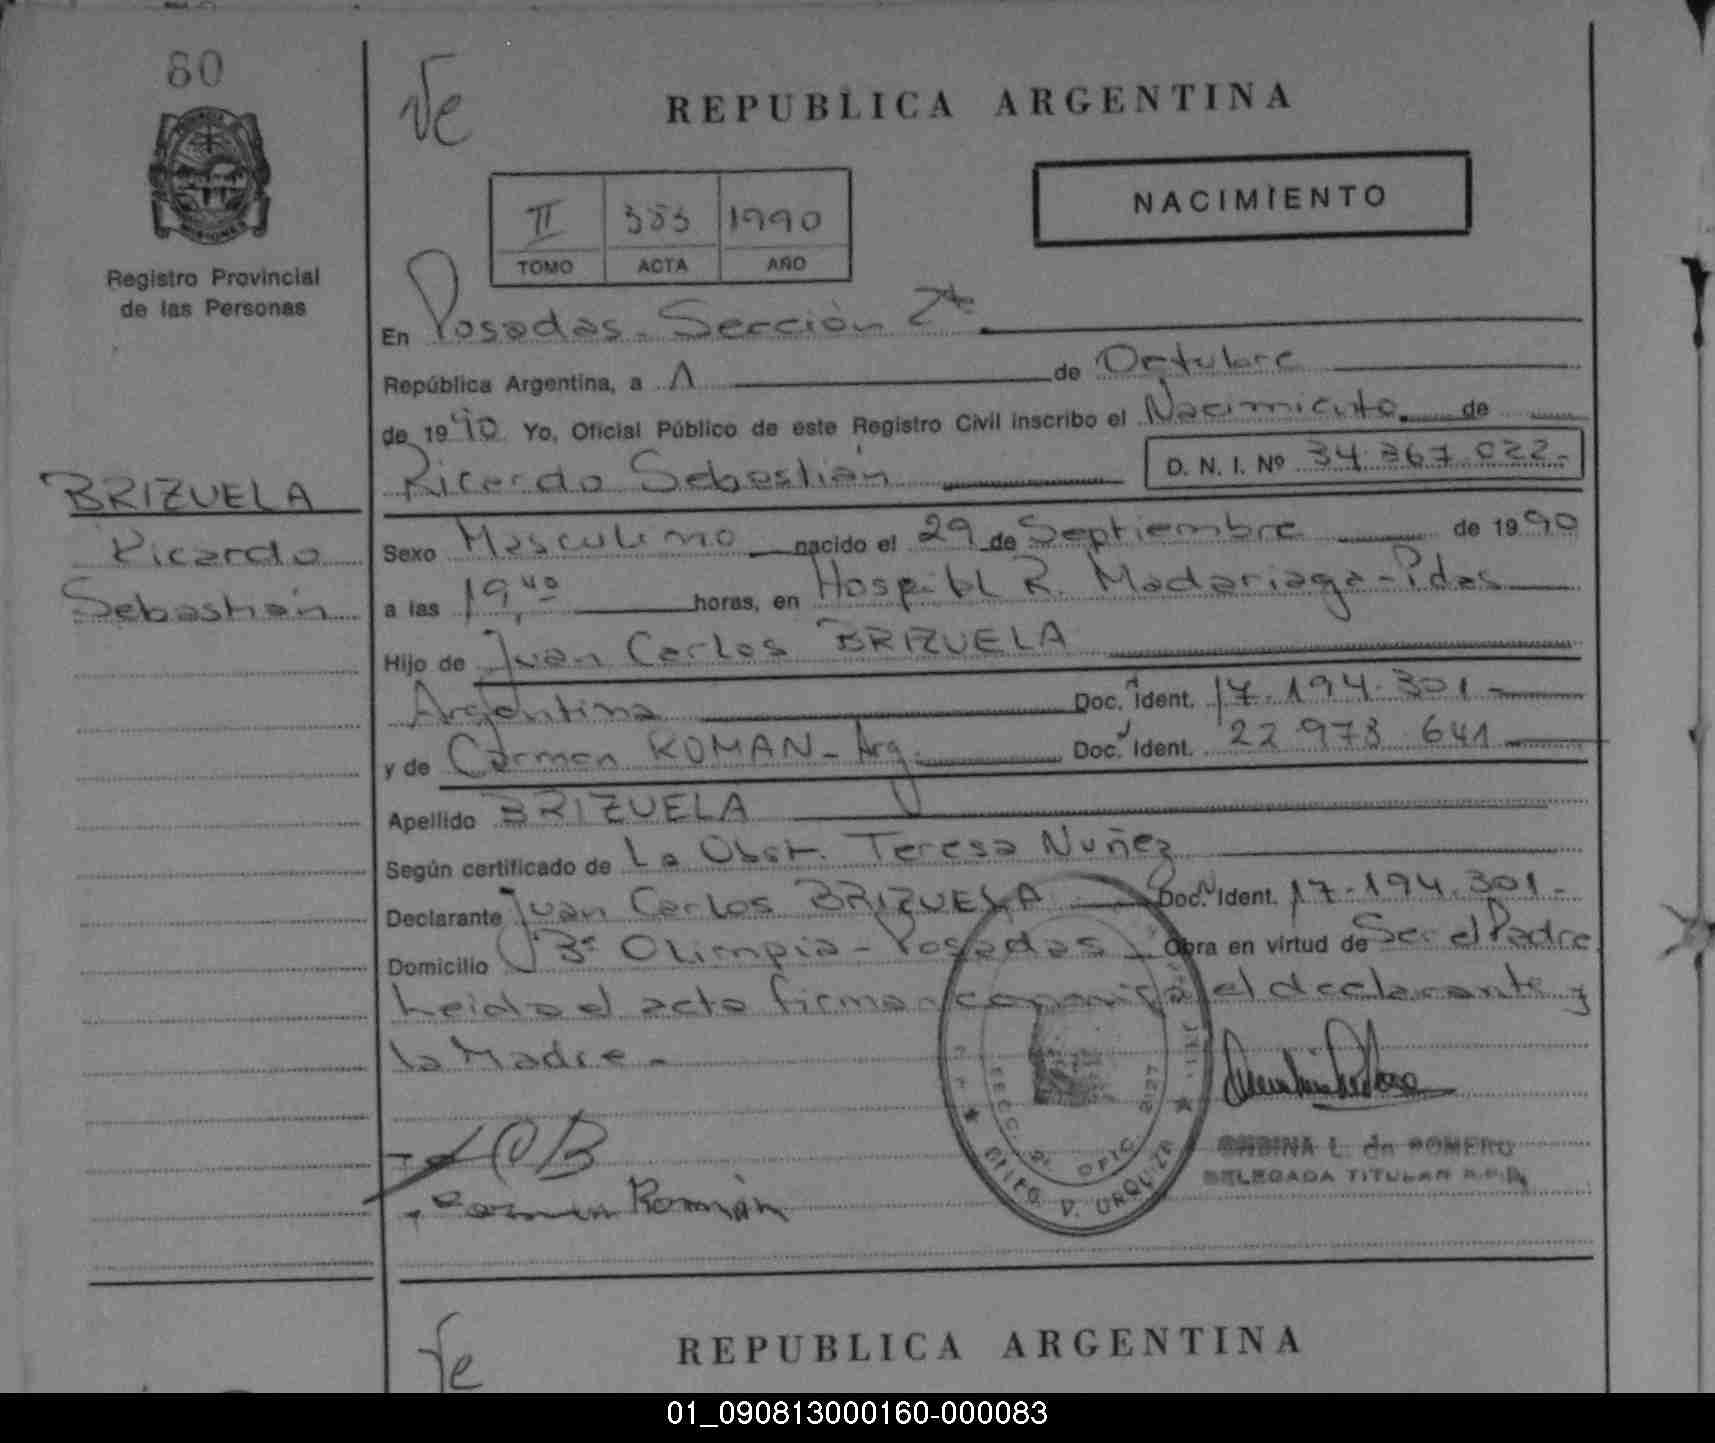 80
Registro Provincial
de las Personas
BRIZUELA
Ricardo
Sebastián
REPUBLICA ARGENTINA
NACIMIENTO
II 383 1990
TOMO ACTA AÑO
En Posadas - Sección 7ª
República Argentina, a 1 de Octubre
de 1990 Yo, Oficial Público de este Registro Civil inscribo el Nacimiento de
Ricardo Sebastián D. N. I. Nº 34.367.022-
Sexo Masculino nacido el 29 de Septiembre de 1990
a las 19,40 horas, en Hospital R. Madariaga - Pdas
Hijo de Juan Carlos BRIZUELA
Argentina Doc. Ident. 17.194.301-
y de Carmen ROMAN - Arg. Doc. Ident. 22.973.641
Apellido BRIZUELA
Según certificado de La Obst. Teresa Nuñez
Declarante Juan Carlos BRIZUELA Doc. Ident. 17.194.301-
Domicilio Bº Olimpia - Posadas Obra en virtud de Ser el Padre
Leida el acta firman conmigo el declarante y
la Madre -
Carmen Román
DELEGADA TITULAR
REPUBLICA ARGENTINA
01_090813000160-000083